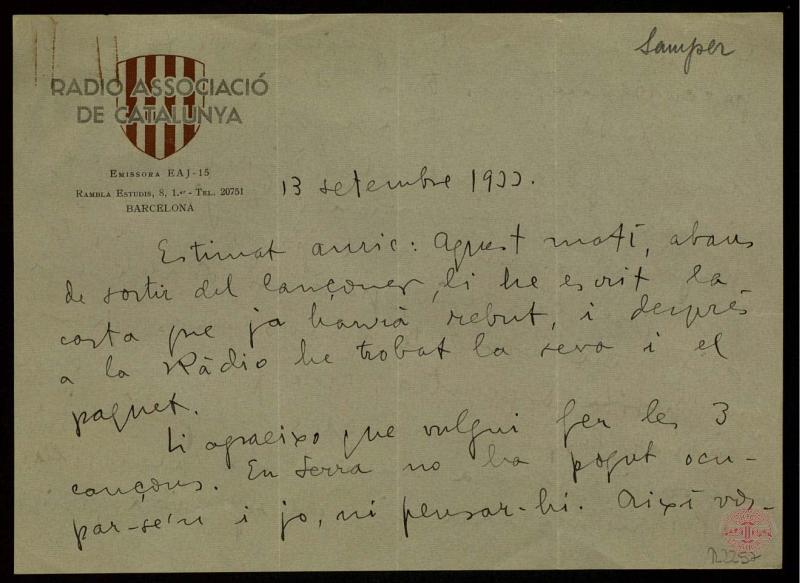 Samper
RADIO ASSOCIACIÓ
DE CATALUNYA
EMISSORA EAJ-15
RAMBLA ESTUDIS, 8, 1.er - TEL. 20751
BARCELONA
13 setembre 1933.
Estimat amic: Aquest matí, abans
de sortir del Cançoner, li he escrit la
carta que ja haurà rebut, i després
a la Ràdio he trobat la seva i el
paquet.
Li agraeixo que vulgui fer les 3
cançons. En Serra no ha pogut ocu-
par-se'n i jo, ni pensar-hi. Així vos-